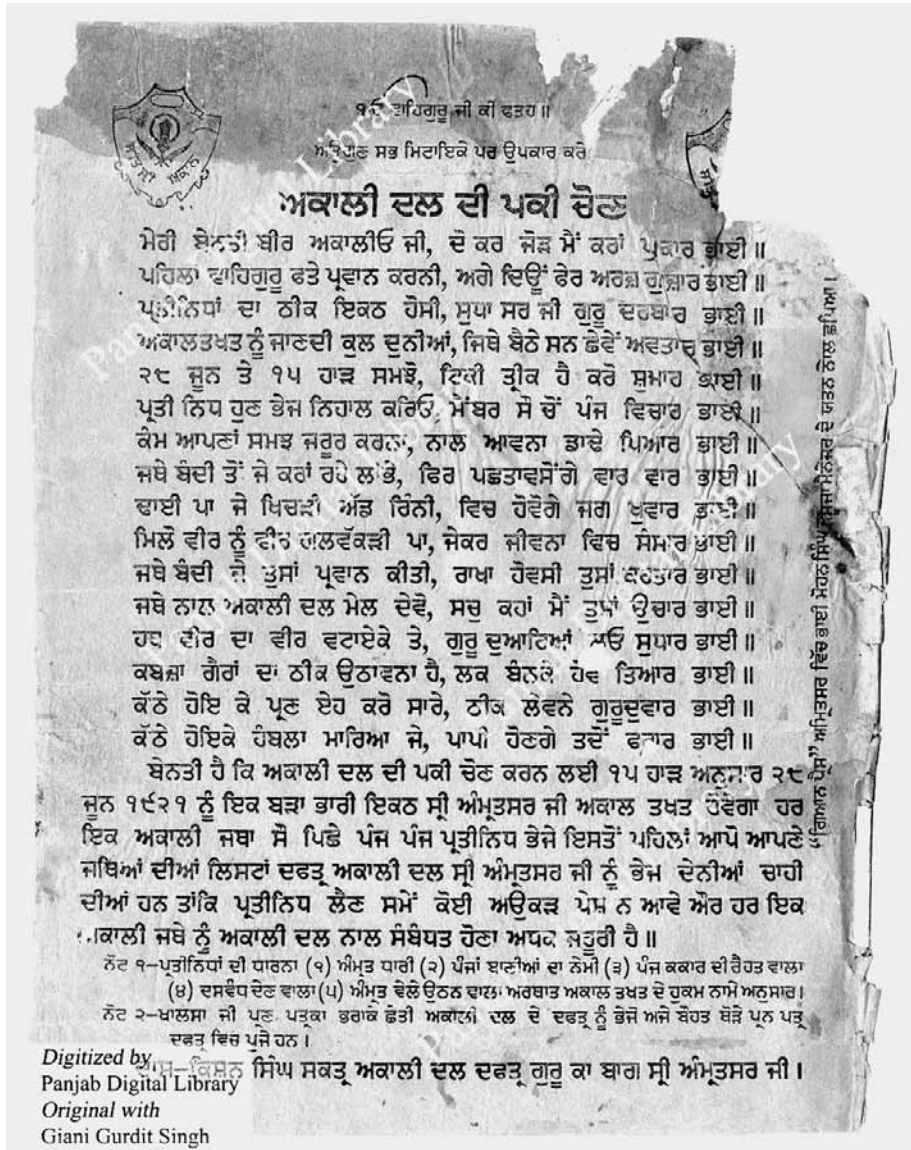 ੧ਓ ਵਾਹਿਗੁਰੂ ਜੀ ਕੀ ਫਤਹ॥
ਅਉਗੁਣ ਸਭ ਮਿਟਾਇਕੇ ਪਰ ਉਪਕਾਰ ਕਰੇ
ਅਕਾਲੀ ਦਲ ਦੀ ਪਕੀ ਚੋਣ
ਮੇਰੀ ਬੇਨਤੀ ਬੀਰ ਅਕਾਲੀਓ ਜੀ, ਦੋ ਕਰ ਜੋੜ ਮੈਂ ਕਰਾਂ ਪੁਕਾਰ ਭਾਈ॥
ਪਹਿਲਾਂ ਵਾਹਿਗੁਰੂ ਫਤੇ ਪ੍ਰਵਾਨ ਕਰਨੀ, ਅਗੇ ਦਿਊਂ ਫੇਰ ਅਰਜ਼ ਗੁਜ਼ਾਰ ਭਾਈ॥
ਪ੍ਰਤੀਨਿਧਾਂ ਦਾ ਠੀਕ ਇਕਠ ਹੋਸੀ, ਸੁਧਾ ਸਰ ਜੀ ਗੁਰੂ ਦਰਬਾਰ ਭਾਈ॥
ਅਕਾਲਤਖਤ ਨੂੰ ਜਾਣਦੀ ਕੁਲ ਦੁਨੀਆਂ, ਜਿਥੇ ਬੈਠੇ ਸਨ ਛੇਵੇਂ ਅਵਤਾਰ ਭਾਈ॥
੨੮ ਜੂਨ ਤੇ ੧੫ ਹਾੜ ਸਮਝੋ, ਟਿਕੀ ਤ੍ਰੀਕ ਹੈ ਕਰੋ ਸ਼ੁਮਾਰ ਭਾਈ॥
ਪ੍ਰਤੀ ਨਿਧ ਹੁਣ ਭੇਜ ਨਿਹਾਲ ਕਰਿਓ, ਮੈਂਬਰ ਸੌ ਚੋਂ ਪੰਜ ਵਿਚਾਰ ਭਾਈ॥
ਕੰਮ ਆਪਣਾਂ ਸਮਝ ਜਰੂਰ ਕਰਨਾ, ਨਾਲ ਆਵਨਾ ਡਾਢੇ ਪਿਆਰ ਭਾਈ॥
ਜਥੇ ਬੰਦੀ ਤੋਂ ਜੇ ਕਰਾਂ ਰਹੇ ਲਾਂਭੇ, ਫਿਰ ਪਛਤਾਵਸੋਂਗੇ ਵਾਰ ਵਾਰ ਭਾਈ॥
ਢਾਈ ਪਾ ਜੇ ਖਿਚੜੀ ਅੱਡ ਰਿੰਨੀ, ਵਿਚ ਹੋਵੋਗੇ ਜਗ ਖੁਵਾਰ ਭਾਈ॥
ਮਿਲੋ ਵੀਰ ਨੂੰ ਵੀਰ ਗਲਵੱਕੜੀ ਪਾ, ਜੇਕਰ ਜੀਵਨਾ ਵਿਚ ਸੰਸਾਰ ਭਾਈ॥
ਜਥੇ ਬੰਦੀ ਜੇ ਤੁਸਾਂ ਪ੍ਰਵਾਨ ਕੀਤੀ, ਰਾਖਾ ਹੋਵਸੀ ਤੁਸਾਂ ਕਰਤਾਰ ਭਾਈ॥
ਜਥੇ ਨਾਲ ਅਕਾਲੀ ਦਲ ਮੇਲ ਦੇਵੋ, ਸਚੁ ਕਹਾਂ ਮੈਂ ਤੁਸਾਂ ਉਚਾਰ ਭਾਈ॥
ਹਥ ਵੀਰ ਦਾ ਵੀਰ ਵਟਾਏਕੇ ਤੇ, ਗੁਰੂ ਦੁਆਰਿਆਂ ਸੁਧਾਰ ਭਾਈ॥
ਕਬਜ਼ਾ ਗੈਰਾਂ ਦਾ ਠੀਕ ਉਠਾਵਨਾ ਹੈ, ਲਕ ਬੰਨਕੇ ਹੋਵੋ ਤਿਆਰ ਭਾਈ॥
ਕੱਠੇ ਹੋਇ ਕੇ ਪ੍ਰਣ ਏਹ ਕਰੋ ਸਾਰੇ, ਠੀਕ ਲੇਵਨੇ ਗੁਰੂਦੁਵਾਰ ਭਾਈ॥
ਕੱਠੇ ਹੋਇਕੇ ਹੰਬਲਾ ਮਾਰਿਆ ਜੇ, ਪਾਪੀ ਹੋਣਗੇ ਤਦੋਂ ਫਰਾਰ ਭਾਈ॥
ਬੇਨਤੀ ਹੈ ਕਿ ਅਕਾਲੀ ਦਲ ਦੀ ਪਕੀ ਚੋਣ ਕਰਨ ਲਈ ੧੫ ਹਾੜ ਅਨੁਸਾਰ ੨੮
ਜੂਨ ੧੯੨੧ ਨੂੰ ਇਕ ਬੜਾ ਭਾਰੀ ਇਕਠ ਸ੍ਰੀ ਅੰਮ੍ਰਤਸਰ ਜੀ ਅਕਾਲ ਤਖਤ ਹੋਵੇਗਾ ਹਰ
ਇਕ ਅਕਾਲੀ ਜਥਾ ਸੌ ਪਿਛੇ ਪੰਜ ਪੰਜ ਪ੍ਰਤੀਨਿਧ ਭੇਜੇ ਇਸਤੋਂ ਪਹਿਲਾਂ ਆਪੋ ਆਪਣੇ
ਜਥਿਆਂ ਦੀਆਂ ਲਿਸਟਾਂ ਦਫਤ੍ਰ ਅਕਾਲੀ ਦਲ ਸ੍ਰੀ ਅੰਮ੍ਰਤਸਰ ਜੀ ਨੂੰ ਭੇਜ ਦੇਨੀਆਂ ਚਾਹੀ
ਦੀਆਂ ਹਨ ਤਾਂਕਿ ਪ੍ਰਤੀਨਿਧ ਲੈਣ ਸਮੇਂ ਕੋਈ ਅਉਕੜ ਪੇਸ਼ ਨ ਆਵੇ ਔਰ ਹਰ ਇਕ
ਅਕਾਲੀ ਜਥੇ ਨੂੰ ਅਕਾਲੀ ਦਲ ਨਾਲ ਸੰਬੰਧਤ ਹੋਣਾ ਅਧਕ ਜ਼ਰੂਰੀ ਹੈ॥
ਨੋਟ ੧–ਪ੍ਰਤੀਨਿਧਾਂ ਦੀ ਧਾਰਨਾ (੧) ਅੰਮ੍ਰਤ ਧਾਰੀ (੨) ਪੰਜਾਂ ਬਾਣੀਆਂ ਦਾ ਨੇਮੀ (੩) ਪੰਜ ਕਕਾਰ ਦੀ ਰੈਹਤ ਵਾਲਾ
(੪) ਦਸਵੰਧ ਦੇਣ ਵਾਲਾ (੫) ਅੰਮ੍ਰਤ ਵੇਲੇ ਉਠਨ ਵਾਲਾ ਅਰਥਾਤ ਅਕਾਲ ਤਖਤ ਦੇ ਹੁਕਮ ਨਾਮੇਂ ਅਨੁਸਾਰ।
ਨੋਟ ੨–ਖਾਲਸਾ ਜੀ ਪਣ ਪਤ੍ਰਕਾ ਭਰਾਕੇ ਛੇਤੀ ਅਕਾਲੀ ਦਲ ਦੇ ਦਫਤ੍ਰ ਨੂੰ ਭੇਜੋ ਅਜੇ ਬੋਹਤ ਥੋੜੇ ਪ੍ਰਨ ਪਤ੍ਰ
ਦਫਤ੍ਰ ਵਿਚ ਪੁਜੇ ਹਨ।
ਦਾਸ–ਕਿਸ਼ਨ ਸਿੰਘ ਸਕਤ੍ਰ ਅਕਾਲੀ ਦਲ ਦਫਤ੍ਰ ਗੁਰੂ ਕਾ ਬਾਗ ਸ੍ਰੀ ਅੰਮ੍ਰਤਸਰ ਜੀ।
"ਗਿਆਨ ਪ੍ਰੈਸ" ਅਮ੍ਰਿਤਸਰ ਵਿੱਚ ਭਾਈ ਮੋਹਨ ਸਿੰਘ ਮੈਨੇਜਰ ਦੇ ਯਤਨ ਨਾਲ ਛਪਿਆ।
Digitized by
Panjab Digital Library
Original with
Giani Gurdit Singh